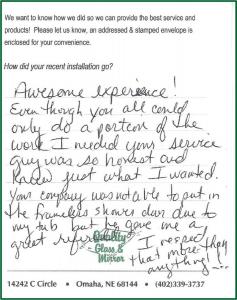 We want to know how we did so we can provide the best service and
products! Please let us know, an addressed & stamped envelope is
enclosed for your convenience.
How did your recent installation go?
Awesome experience!
Even though you all could
only do a portion of the
work I needed your service
guy was so honest and
knew just what I wanted.
Your company was not able to put in
the frameless shower door due to
my tub but he gave me a
great referral.
I respect
that more than
anything!
Quality
Glass &
Mirror
14242 C Circle • Omaha, NE 68144 • (402)339-3737